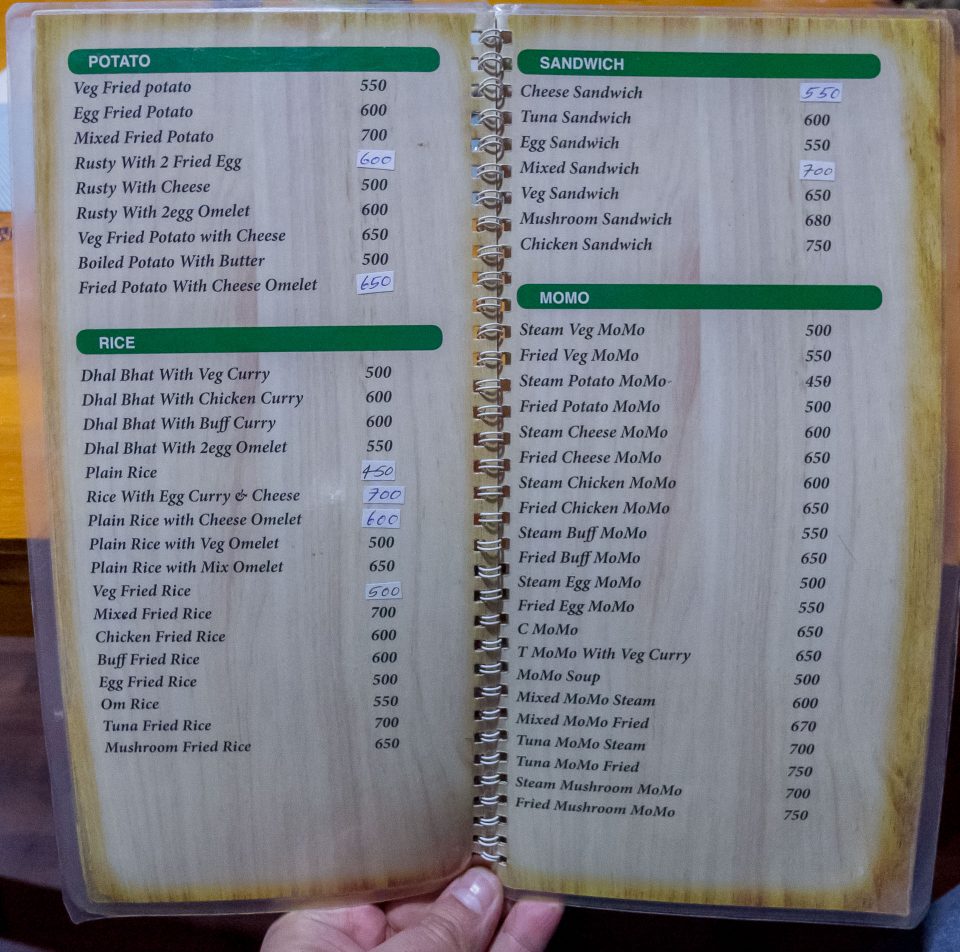 POTATO
Veg Fried potato 550
Egg Fried Potato 600
Mixed Fried Potato 700
Rusty With 2 Fried Egg 600
Rusty With Cheese 500
Rusty With 2egg Omelet 600
Veg Fried Potato with Cheese 650
Boiled Potato With Butter 500
Fried Potato With Cheese Omelet 650
RICE
Dhal Bhat With Veg Curry 500
Dhal Bhat With Chicken Curry 600
Dhal Bhat With Buff Curry 600
Dhal Bhat With 2egg Omelet 550
Plain Rice 450
Rice With Egg Curry & Cheese 700
Plain Rice with Cheese Omelet 600
Plain Rice with Veg Omelet 500
Plain Rice with Mix Omelet 650
Veg Fried Rice 500
Mixed Fried Rice 700
Chicken Fried Rice 600
Buff Fried Rice 600
Egg Fried Rice 500
Om Rice 550
Tuna Fried Rice 700
Mushroom Fried Rice 650
SANDWICH
Cheese Sandwich 550
Tuna Sandwich 600
Egg Sandwich 550
Mixed Sandwich 700
Veg Sandwich 650
Mushroom Sandwich 680
Chicken Sandwich 750
MOMO
Steam Veg MoMo 500
Fried Veg MoMo 550
Steam Potato MoMo 450
Fried Potato MoMo 500
Steam Cheese MoMo 600
Fried Cheese MoMo 650
Steam Chicken MoMo 600
Fried Chicken MoMo 650
Steam Buff MoMo 550
Fried Buff MoMo 650
Steam Egg MoMo 500
Fried Egg MoMo 550
C MoMo 650
T MoMo With Veg Curry 650
MoMo Soup 500
Mixed MoMo Steam 600
Mixed MoMo Fried 670
Tuna MoMo Steam 700
Tuna MoMo Fried 750
Steam Mushroom MoMo 700
Fried Mushroom MoMo 750